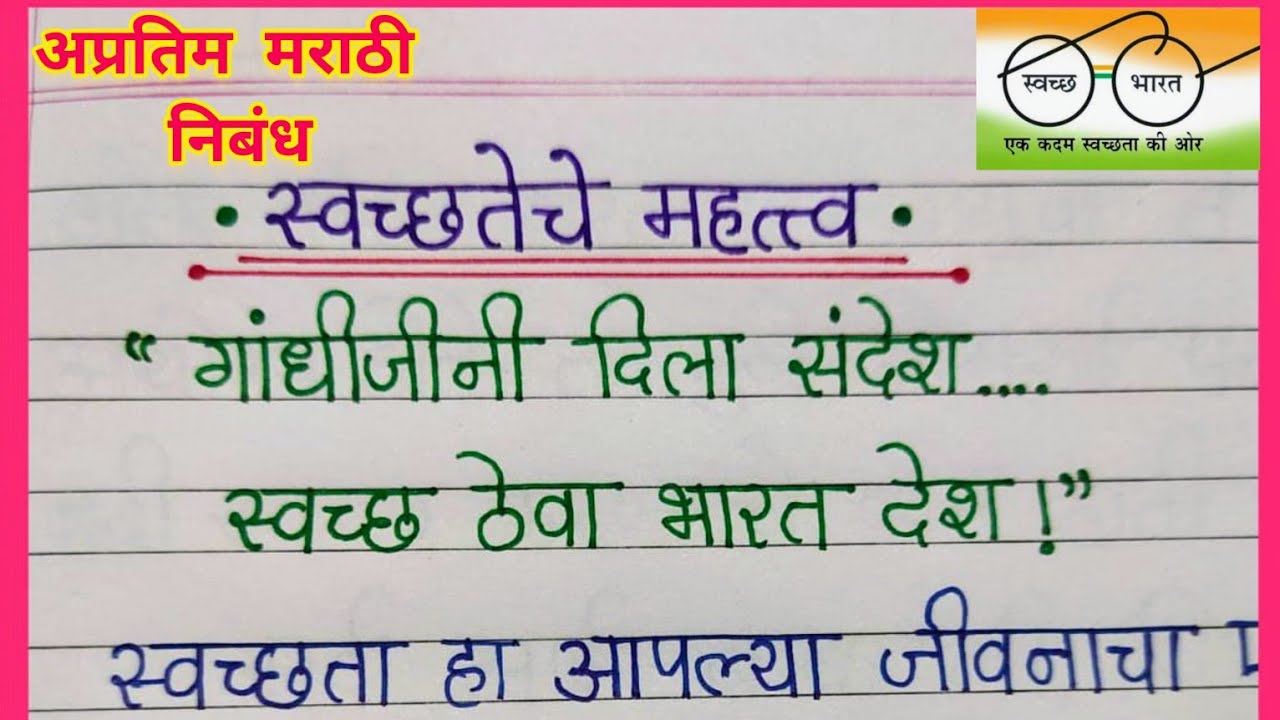 अप्रतिम मराठी
निबंध
स्वच्छ भारत
एक कदम स्वच्छता की ओर
• स्वच्छतेचे महत्त्व •
“ गांधीजीनी दिला संदेश....
स्वच्छ ठेवा भारत देश !”
स्वच्छता हा आपल्या जीवनाचा